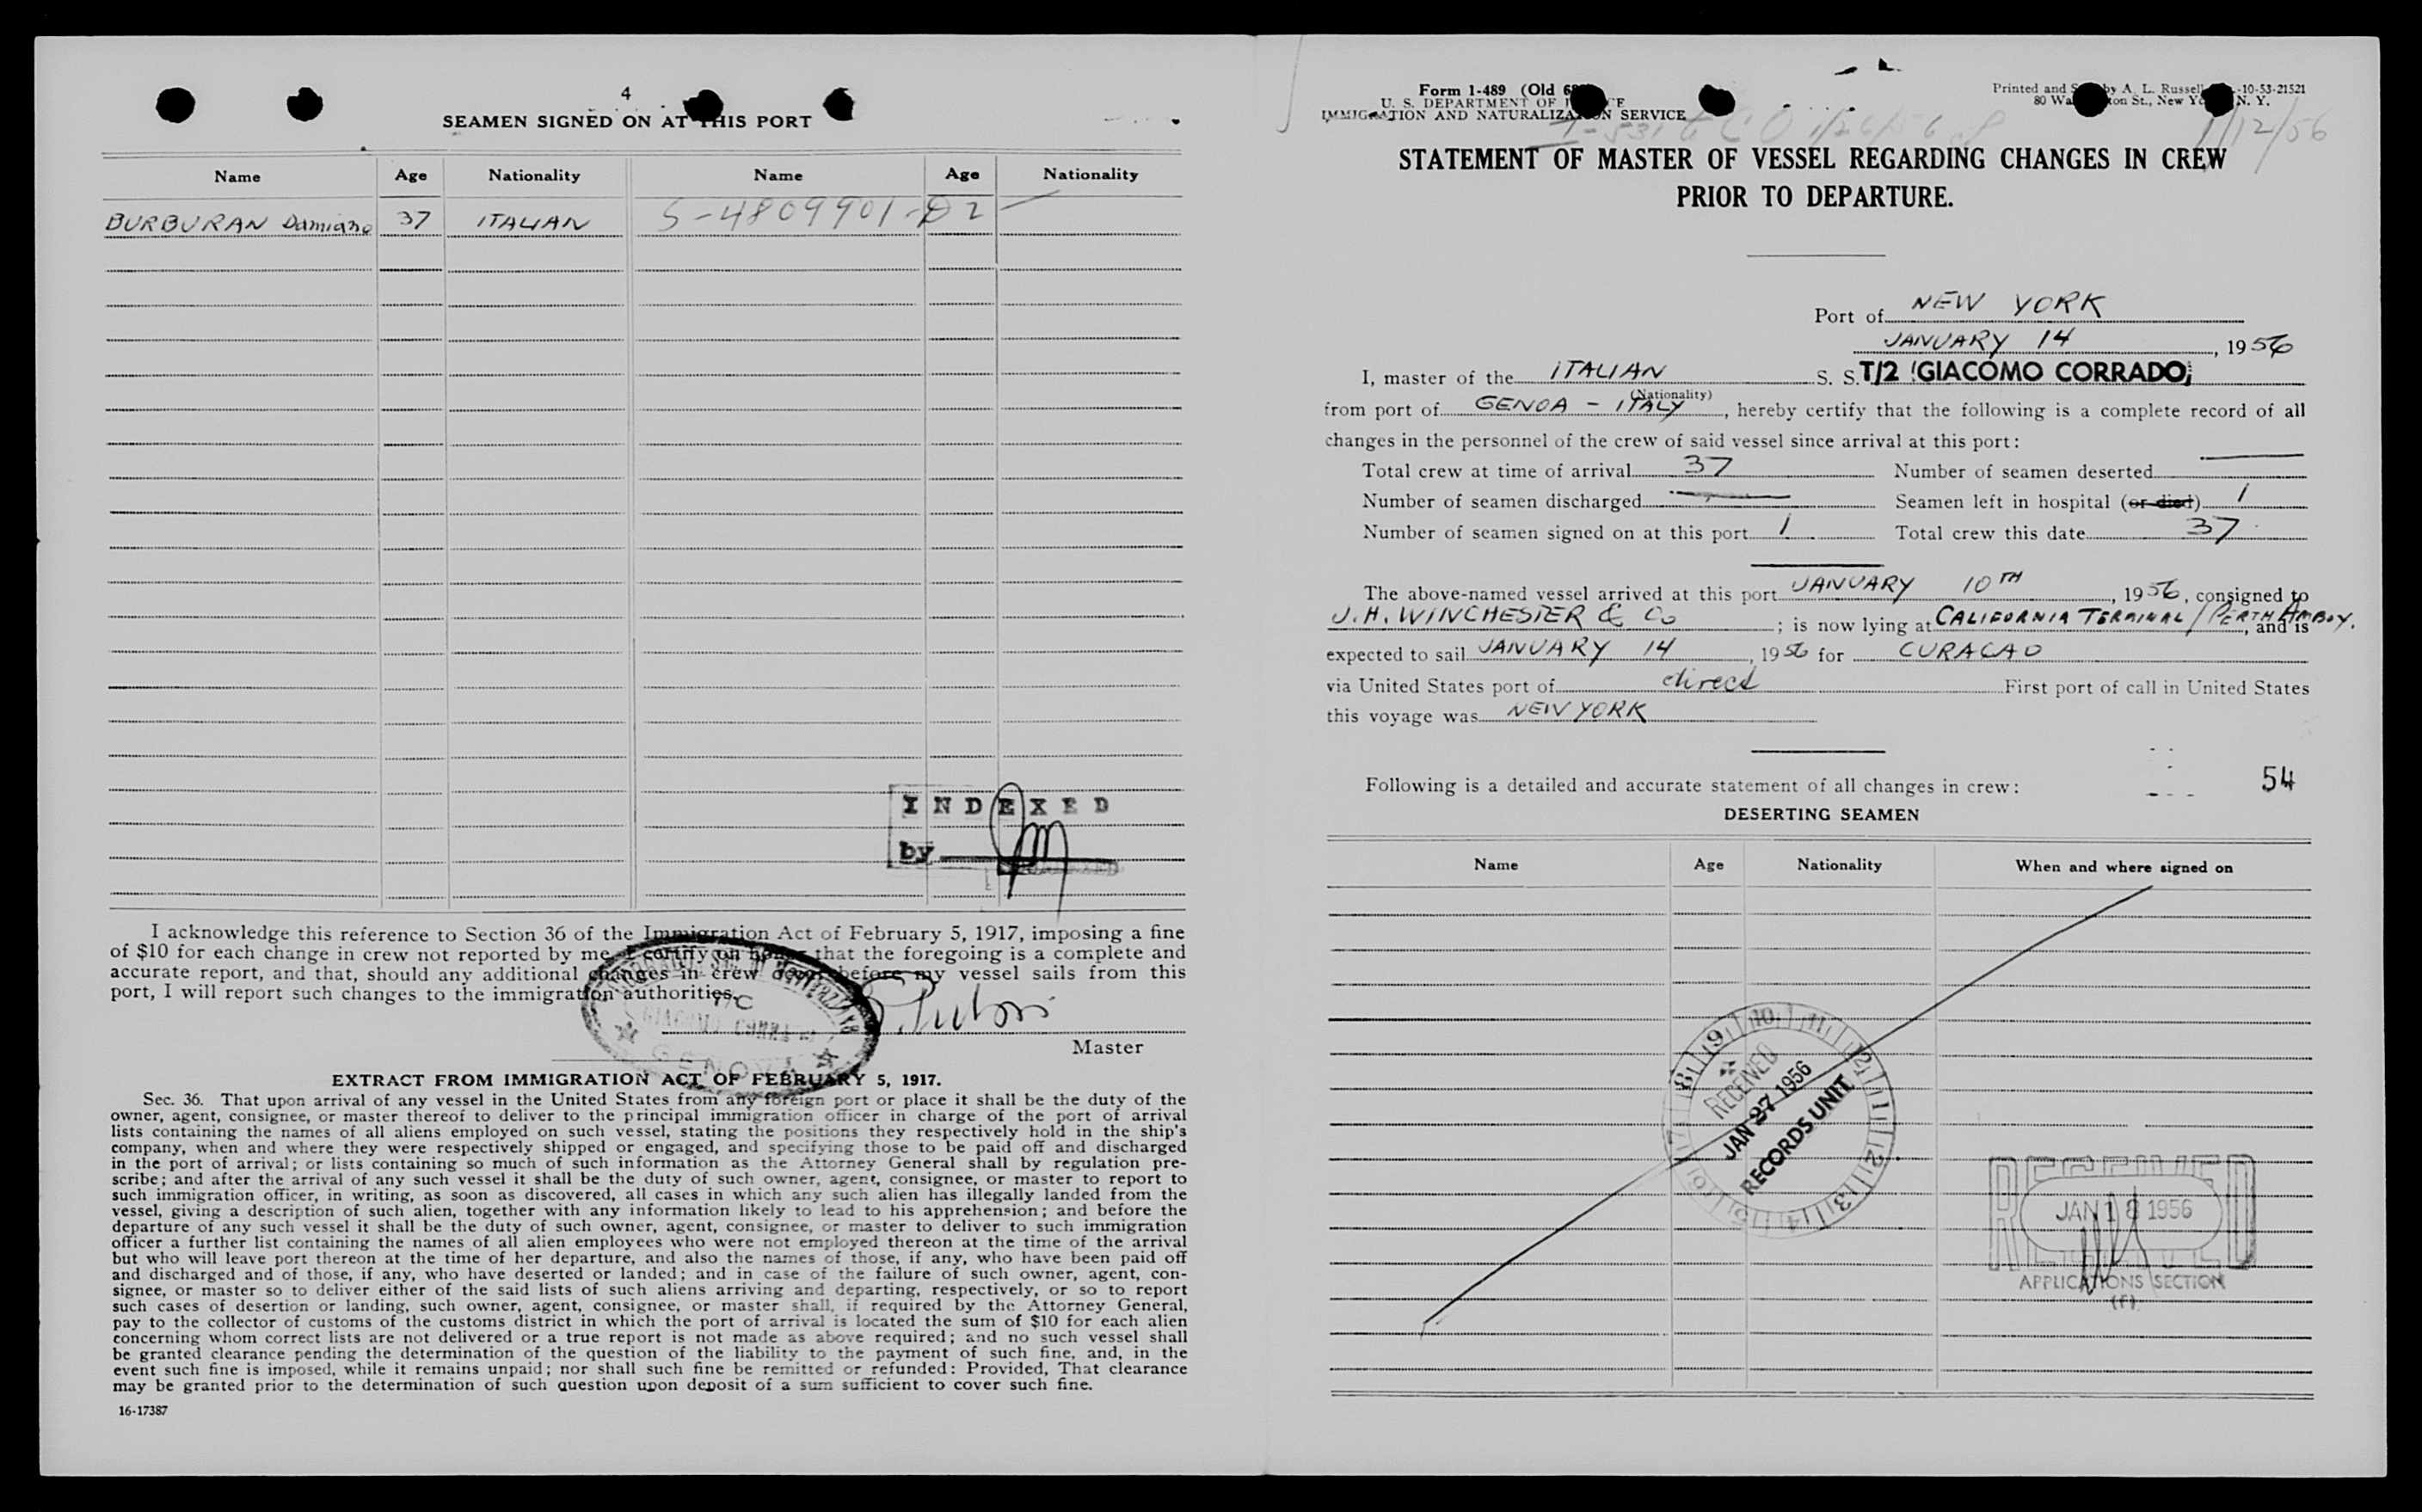 4
SEAMEN SIGNED ON AT THIS PORT
Name Age Nationality Name Age Nationality
BURBURAN Damiano 37 ITALIAN S-4809901-D2
INDEXED
by
I acknowledge this reference to Section 36 of the Immigration Act of February 5, 1917, imposing a fine
of $10 for each change in crew not reported by me. I certify on honor that the foregoing is a complete and
accurate report, and that, should any additional changes in crew occur before my vessel sails from this
port, I will report such changes to the immigration authorities.
GENOVA
Master
EXTRACT FROM IMMIGRATION ACT OF FEBRUARY 5, 1917.
Sec. 36. That upon arrival of any vessel in the United States from any foreign port or place it shall be the duty of the
owner, agent, consignee, or master thereof to deliver to the principal immigration officer in charge of the port of arrival
lists containing the names of all aliens employed on such vessel, stating the positions they respectively hold in the ship's
company, when and where they were respectively shipped or engaged, and specifying those to be paid off and discharged
in the port of arrival; or lists containing so much of such information as the Attorney General shall by regulation pre-
scribe; and after the arrival of any such vessel it shall be the duty of such owner, agent, consignee, or master to report to
such immigration officer, in writing, as soon as discovered, all cases in which any such alien has illegally landed from the
vessel, giving a description of such alien, together with any information likely to lead to his apprehension; and before the
departure of any such vessel it shall be the duty of such owner, agent, consignee, or master to deliver to such immigration
officer a further list containing the names of all alien employees who were not employed thereon at the time of the arrival
but who will leave port thereon at the time of her departure, and also the names of those, if any, who have been paid off
and discharged and of those, if any, who have deserted or landed; and in case of the failure of such owner, agent, con-
signee, or master so to deliver either of the said lists of such aliens arriving and departing, respectively, or so to report
such cases of desertion or landing, such owner, agent, consignee, or master shall, if required by the Attorney General,
pay to the collector of customs of the customs district in which the port of arrival is located the sum of $10 for each alien
concerning whom correct lists are not delivered or a true report is not made as above required; and no such vessel shall
be granted clearance pending the determination of the question of the liability to the payment of such fine, and, in the
event such fine is imposed, while it remains unpaid; nor shall such fine be remitted or refunded: Provided, That clearance
may be granted prior to the determination of such question upon deposit of a sum sufficient to cover such fine.
16-17387
Form I-489 (Old
U. S. DEPARTMENT OF JUSTICE
IMMIGRATION AND NATURALIZATION SERVICE
Printed and Sold by A. L. Russell -10-53-21521
80 Washington St., New York, N. Y.
1/12/56
STATEMENT OF MASTER OF VESSEL REGARDING CHANGES IN CREW
PRIOR TO DEPARTURE.
Port of NEW YORK
JANUARY 14, 1956
I, master of the ITALIAN S. S. T/2 "GIACOMO CORRADO"
(Nationality)
from port of GENOA - ITALY, hereby certify that the following is a complete record of all
changes in the personnel of the crew of said vessel since arrival at this port:
Total crew at time of arrival 37 Number of seamen deserted —
Number of seamen discharged — Seamen left in hospital (or died) 1
Number of seamen signed on at this port 1 Total crew this date 37
The above-named vessel arrived at this port JANUARY 10TH, 1956, consigned to
J.H. WINCHESTER & Co; is now lying at CALIFORNIA TERMINAL / PERTH AMBOY., and is
expected to sail JANUARY 14, 1956 for CURACAO
via United States port of direct First port of call in United States
this voyage was NEW YORK
54
Following is a detailed and accurate statement of all changes in crew:
DESERTING SEAMEN
Name Age Nationality When and where signed on
RECEIVED
JAN 27 1956
RECORDS UNIT
RECEIVED
JAN 18 1956
APPLICATIONS SECTION